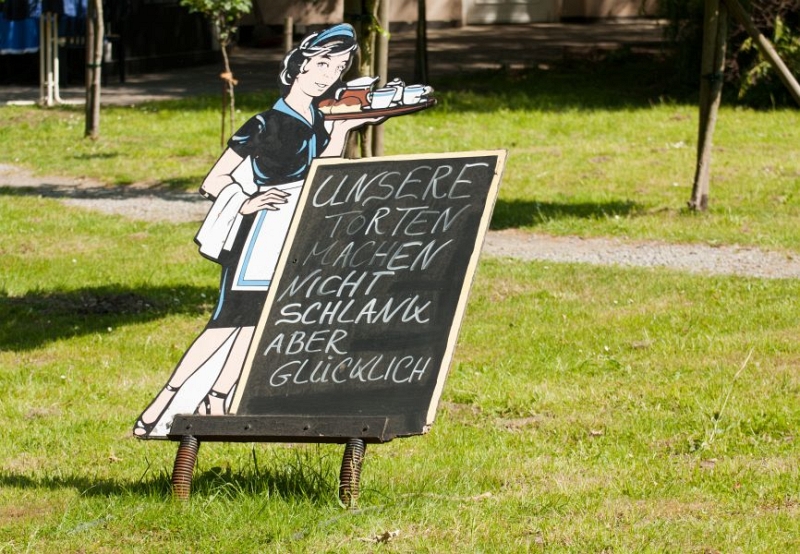 UNSERE
TORTEN
MACHEN
NICHT
SCHLANK
ABER
GLÜCKLICH